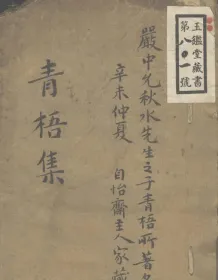 玉鑑堂藏書
第八〇一號
嚴中允秋水先生之子青梧所著
辛未仲夏 自怡齋主人家藏
青梧集